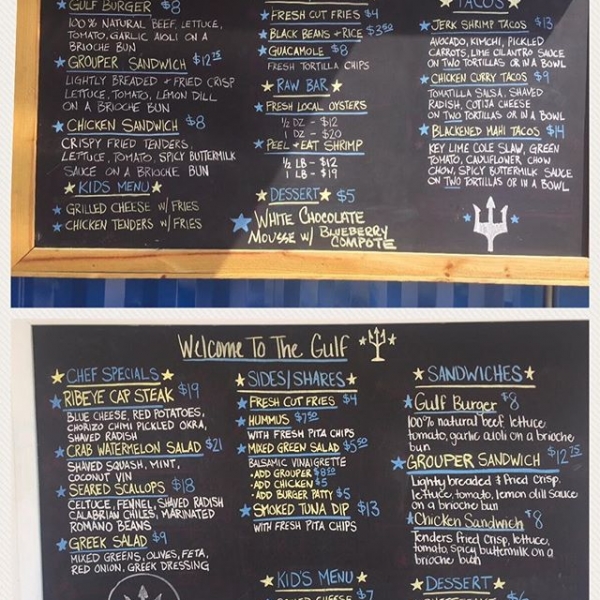 GULF BURGER $8
100% NATURAL BEEF, LETTUCE,
TOMATO, GARLIC AIOLI ON A
BRIOCHE BUN
GROUPER SANDWICH $12.75
LIGHTLY BREADED + FRIED CRISP
LETTUCE, TOMATO, LEMON DILL
ON A BRIOCHE BUN
CHICKEN SANDWICH $8
CRISPY FRIED TENDERS,
LETTUCE, TOMATO, SPICY BUTTERMILK
SAUCE ON A BRIOCHE BUN
KIDS MENU
GRILLED CHEESE W/ FRIES
CHICKEN TENDERS W/ FRIES
FRESH CUT FRIES $4
BLACK BEANS + RICE $3.50
GUACAMOLE $8
FRESH TORTILLA CHIPS
RAW BAR
FRESH LOCAL OYSTERS
1/2 DZ - $12
1 DZ - $20
PEEL + EAT SHRIMP
1/2 LB - $12
1 LB - $19
DESSERT $5
WHITE CHOCOLATE
MOUSSE W/ BLUEBERRY
COMPOTE
TACOS
JERK SHRIMP TACOS $13
AVOCADO, KIMCHI, PICKLED
CARROTS, LIME CILANTRO SAUCE
ON TWO TORTILLAS OR IN A BOWL
CHICKEN CURRY TACOS $9
TOMATILLA SALSA, SHAVED
RADISH, COTIJA CHEESE
ON TWO TORTILLAS OR IN A BOWL
BLACKENED MAHI TACOS $14
KEY LIME COLE SLAW, GREEN
TOMATO, CAULIFLOWER CHOW
CHOW, SPICY BUTTERMILK SAUCE
ON TWO TORTILLAS OR IN A BOWL
Welcome To The Gulf
CHEF SPECIALS
RIBEYE CAP STEAK $19
BLUE CHEESE, RED POTATOES,
CHORIZO CHIMI PICKLED OKRA,
SHAVED RADISH
CRAB WATERMELON SALAD $21
SHAVED SQUASH, MINT,
COCONUT VIN
SEARED SCALLOPS $18
CELTUCE, FENNEL, SHAVED RADISH
CALABRIAN CHILES, MARINATED
ROMANO BEANS
GREEK SALAD $9
MIXED GREENS, OLIVES, FETA,
RED ONION, GREEK DRESSING
SIDES/SHARES
FRESH CUT FRIES $4
HUMMUS $7.50
WITH FRESH PITA CHIPS
MIXED GREEN SALAD $5.50
BALSAMIC VINAIGRETTE
· ADD GROUPER $8.50
· ADD CHICKEN $5
· ADD BURGER PATTY $5
SMOKED TUNA DIP $13
WITH FRESH PITA CHIPS
KID'S MENU
CHEESE $7
SANDWICHES
Gulf Burger $8
100% natural beef lettuce
tomato, garlic aioli on a brioche
bun
GROUPER SANDWICH $12.75
Lightly breaded & fried Crisp.
lettuce, tomato, lemon dill sauce
on a brioche bun
Chicken Sandwich $8
Tenders fried Crisp, lettuce,
tomato, spicy buttermilk on a
brioche bun
DESSERT